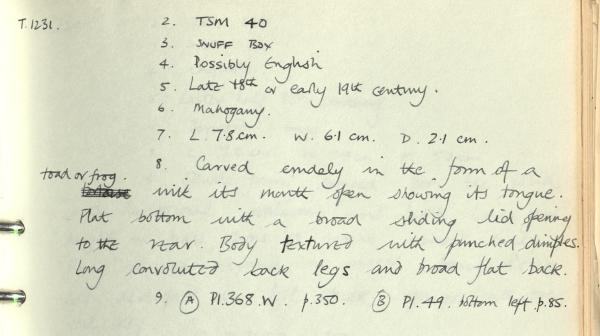 T.1231.
2. TSM 40
3. SNUFF BOX
4. Possibly English
5. Late 18th or early 19th century.
6. Mahogany.
7. L. 7.8 cm. W. 6.1 cm. D. 2.1 cm.
8. Carved crudely in the form of a
toad or frog.
with its mouth open showing its tongue.
Flat bottom with a broad sliding lid opening
to the rear. Body textured with punched dimples.
Long convoluted back legs and broad flat back.
9. Ⓐ Pl. 368. W. p. 350. Ⓑ Pl. 49. bottom left p. 85.